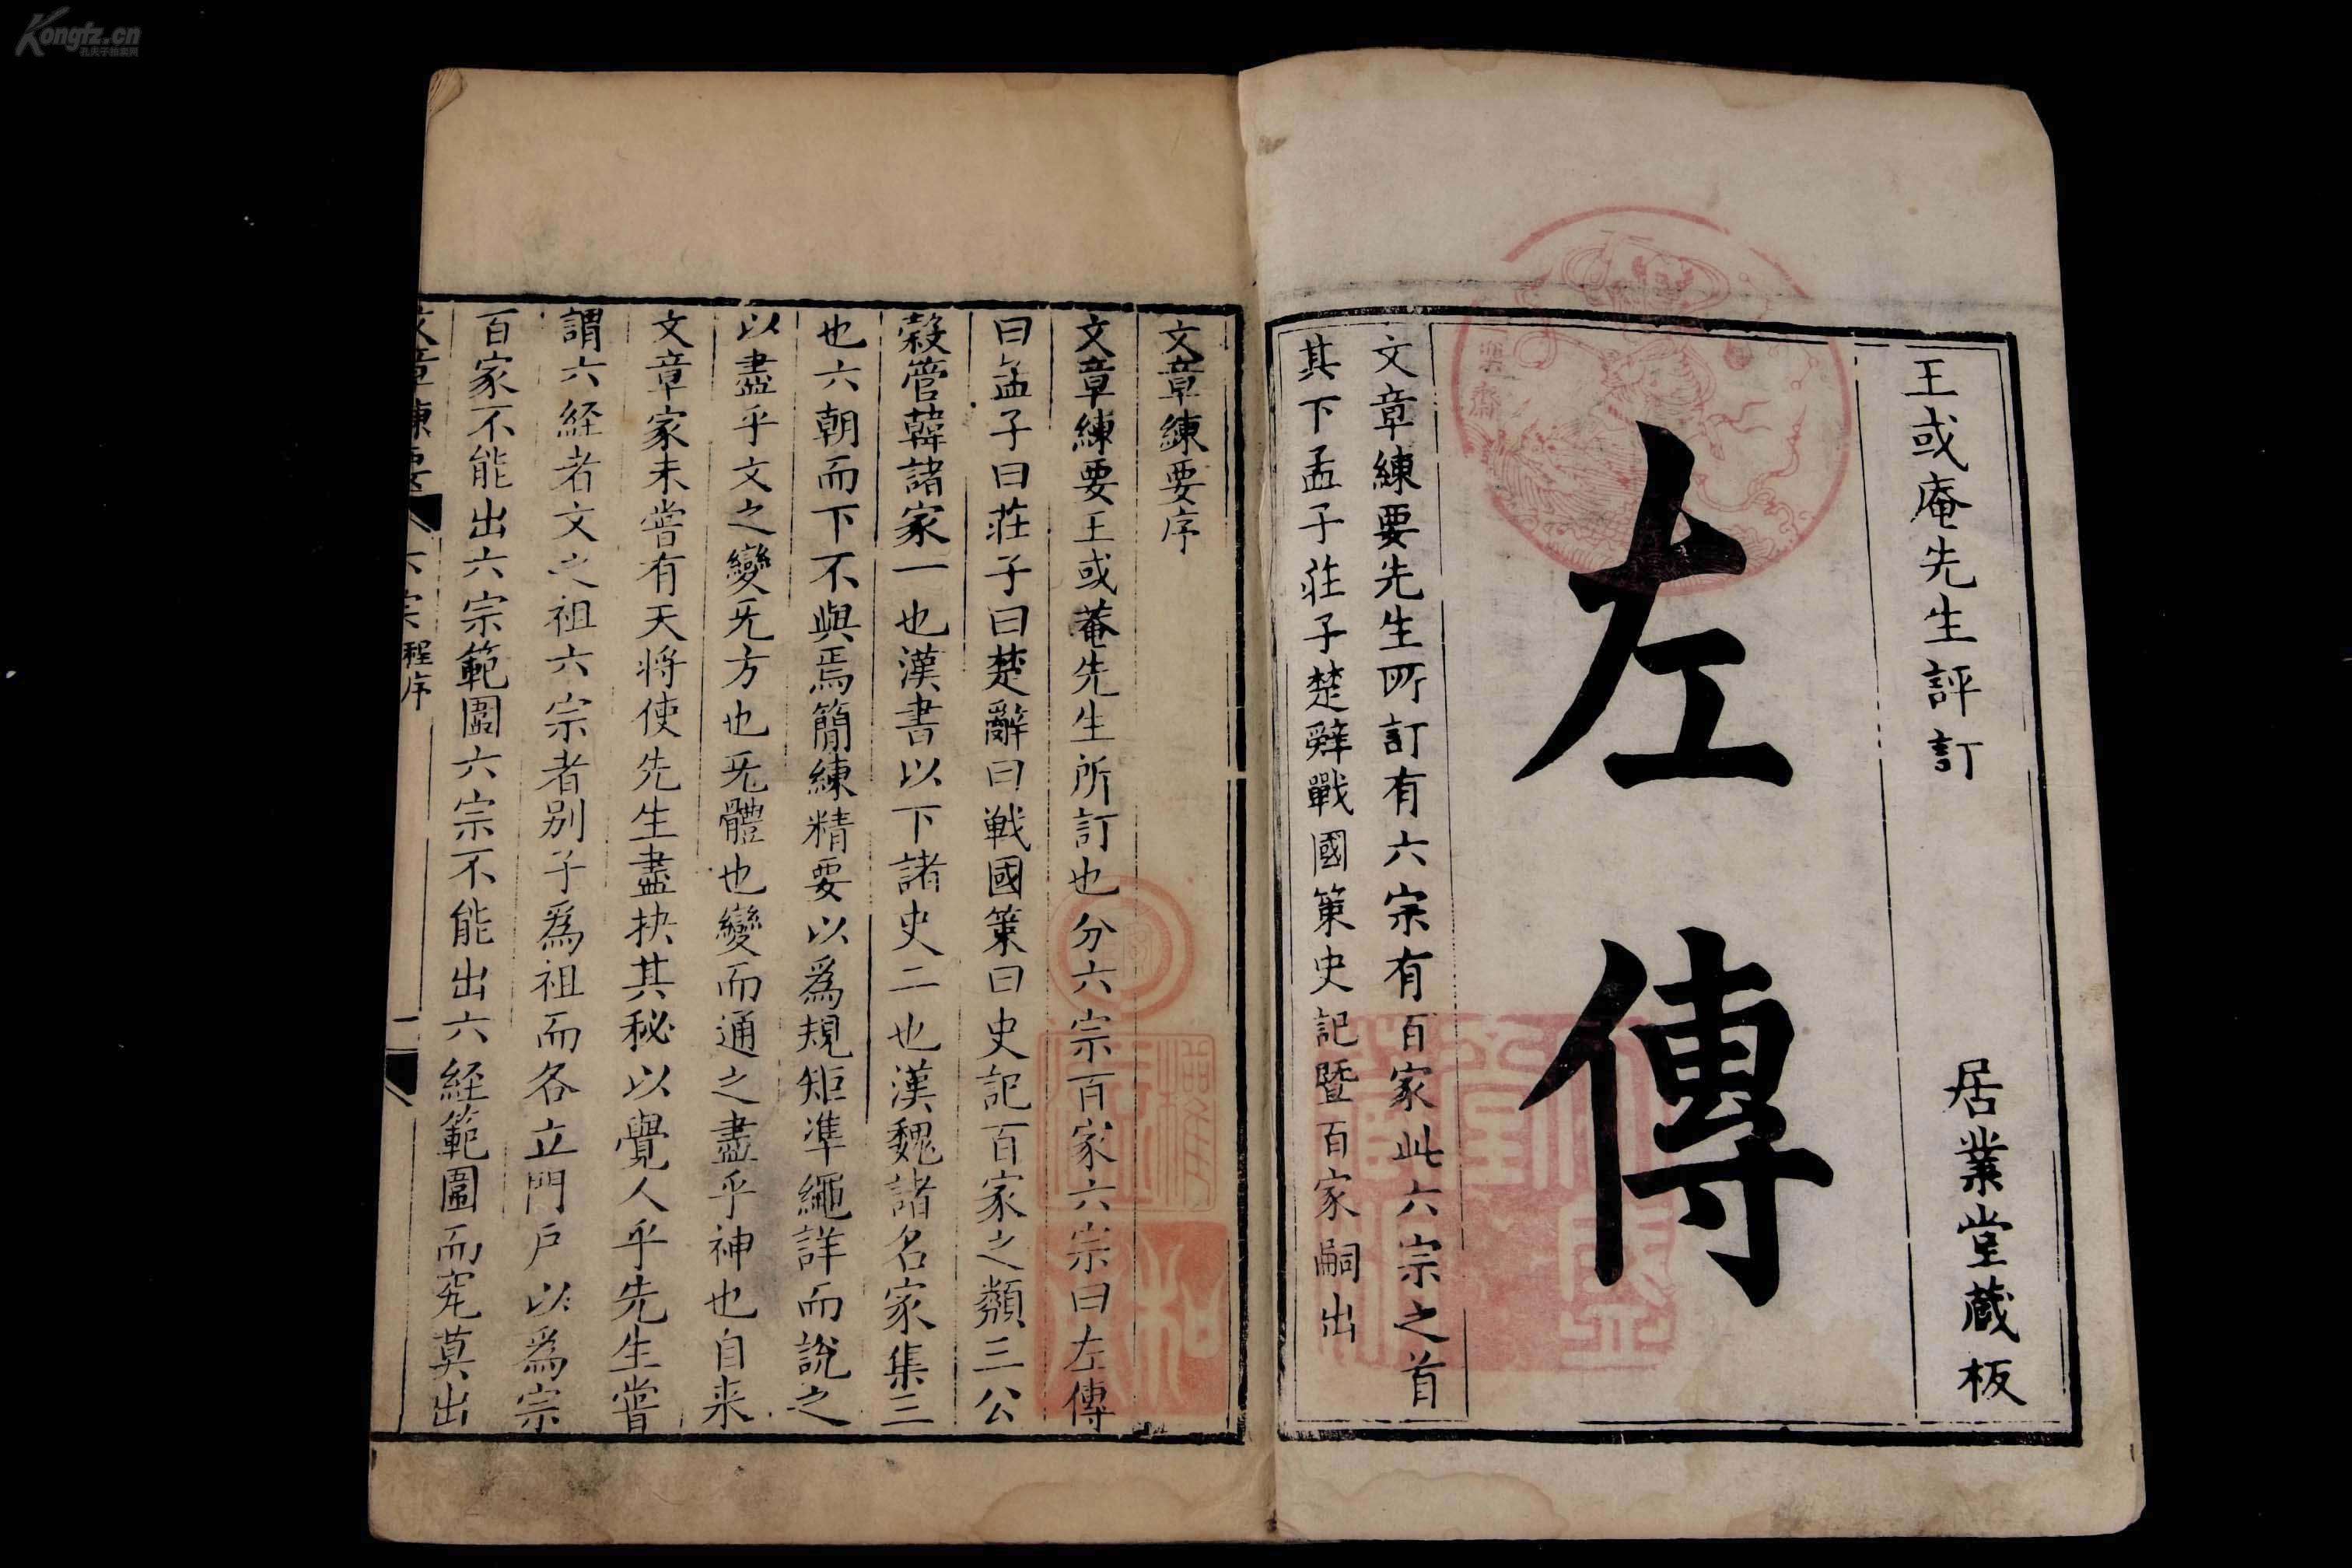 王或庵先生評訂
居業堂藏板
左傳
文章練要先生所訂有六宗有百家此六宗之首
其下孟子莊子楚辭戰國策史記暨百家嗣出
文章練要序
文章練要王或菴先生所訂也分六宗百家六宗曰左傳
曰孟子曰莊子曰楚辭曰戰國策曰史記百家之類三公
穀管韓諸家一也漢書以下諸史二也漢魏諸名家集三
也六朝而下不與焉簡練精要以爲規矩準繩詳而說之
以盡乎文之變旡方也旡體也變而通之盡乎神也自来
文章家未嘗有天將使先生盡抉其秘以覺人乎先生嘗
謂六經者文之祖六宗者别子爲祖而各立門戶以爲宗
百家不能出六宗範圍六宗不能出六經範圍而究莫出
文章練要
六宗程序
一
Kongfz.cn